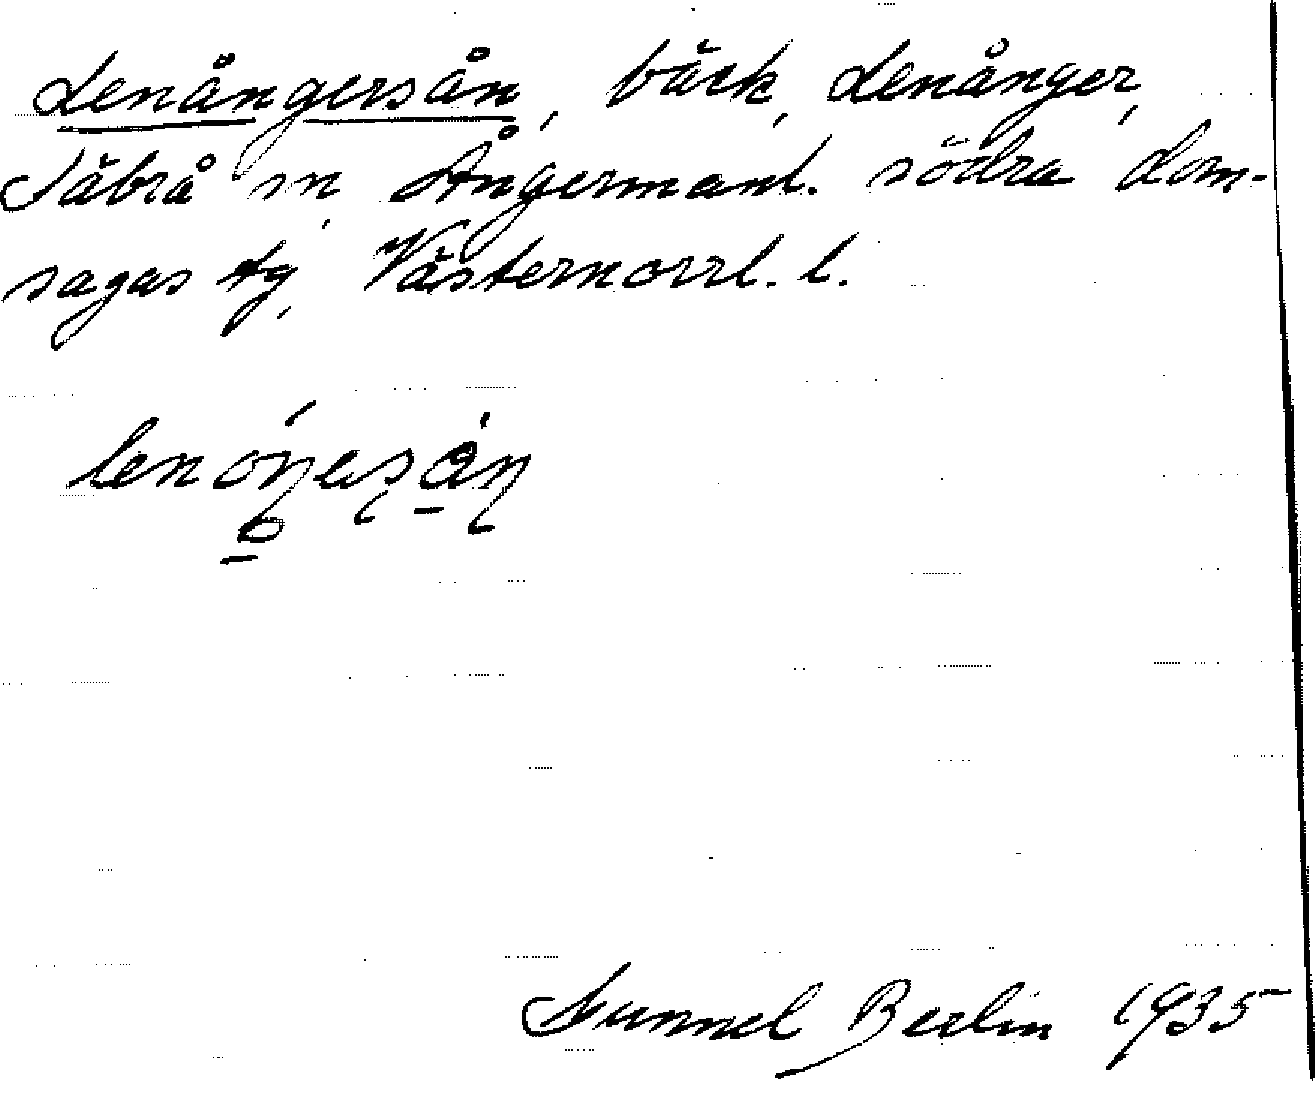 Lenångersån, bäck, Lenånger,
Säbrå sn, Ångermanl. södra dom-
sagas tg, Västernorrl. l.
Gunnel Berlin 1935